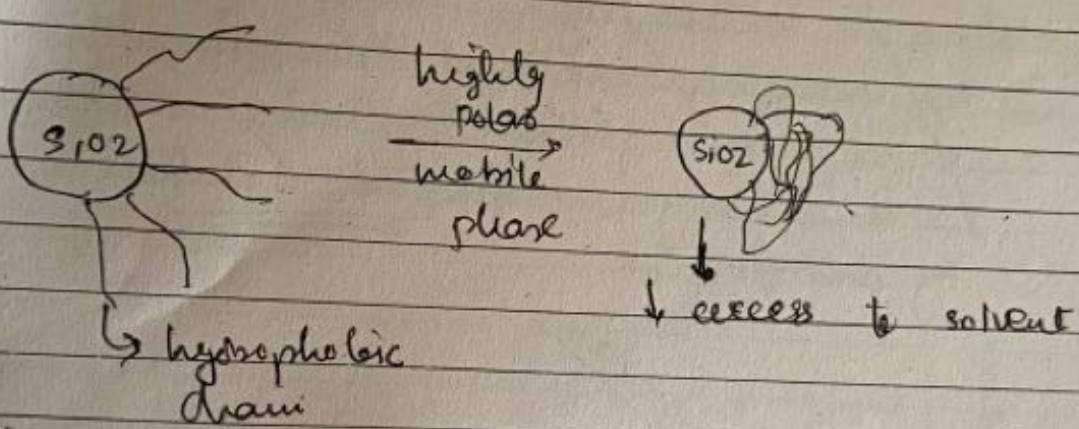 SiO2
highly
polar
mobile
phase
SiO2
↓ access to solvent
↳ hydrophobic
chain